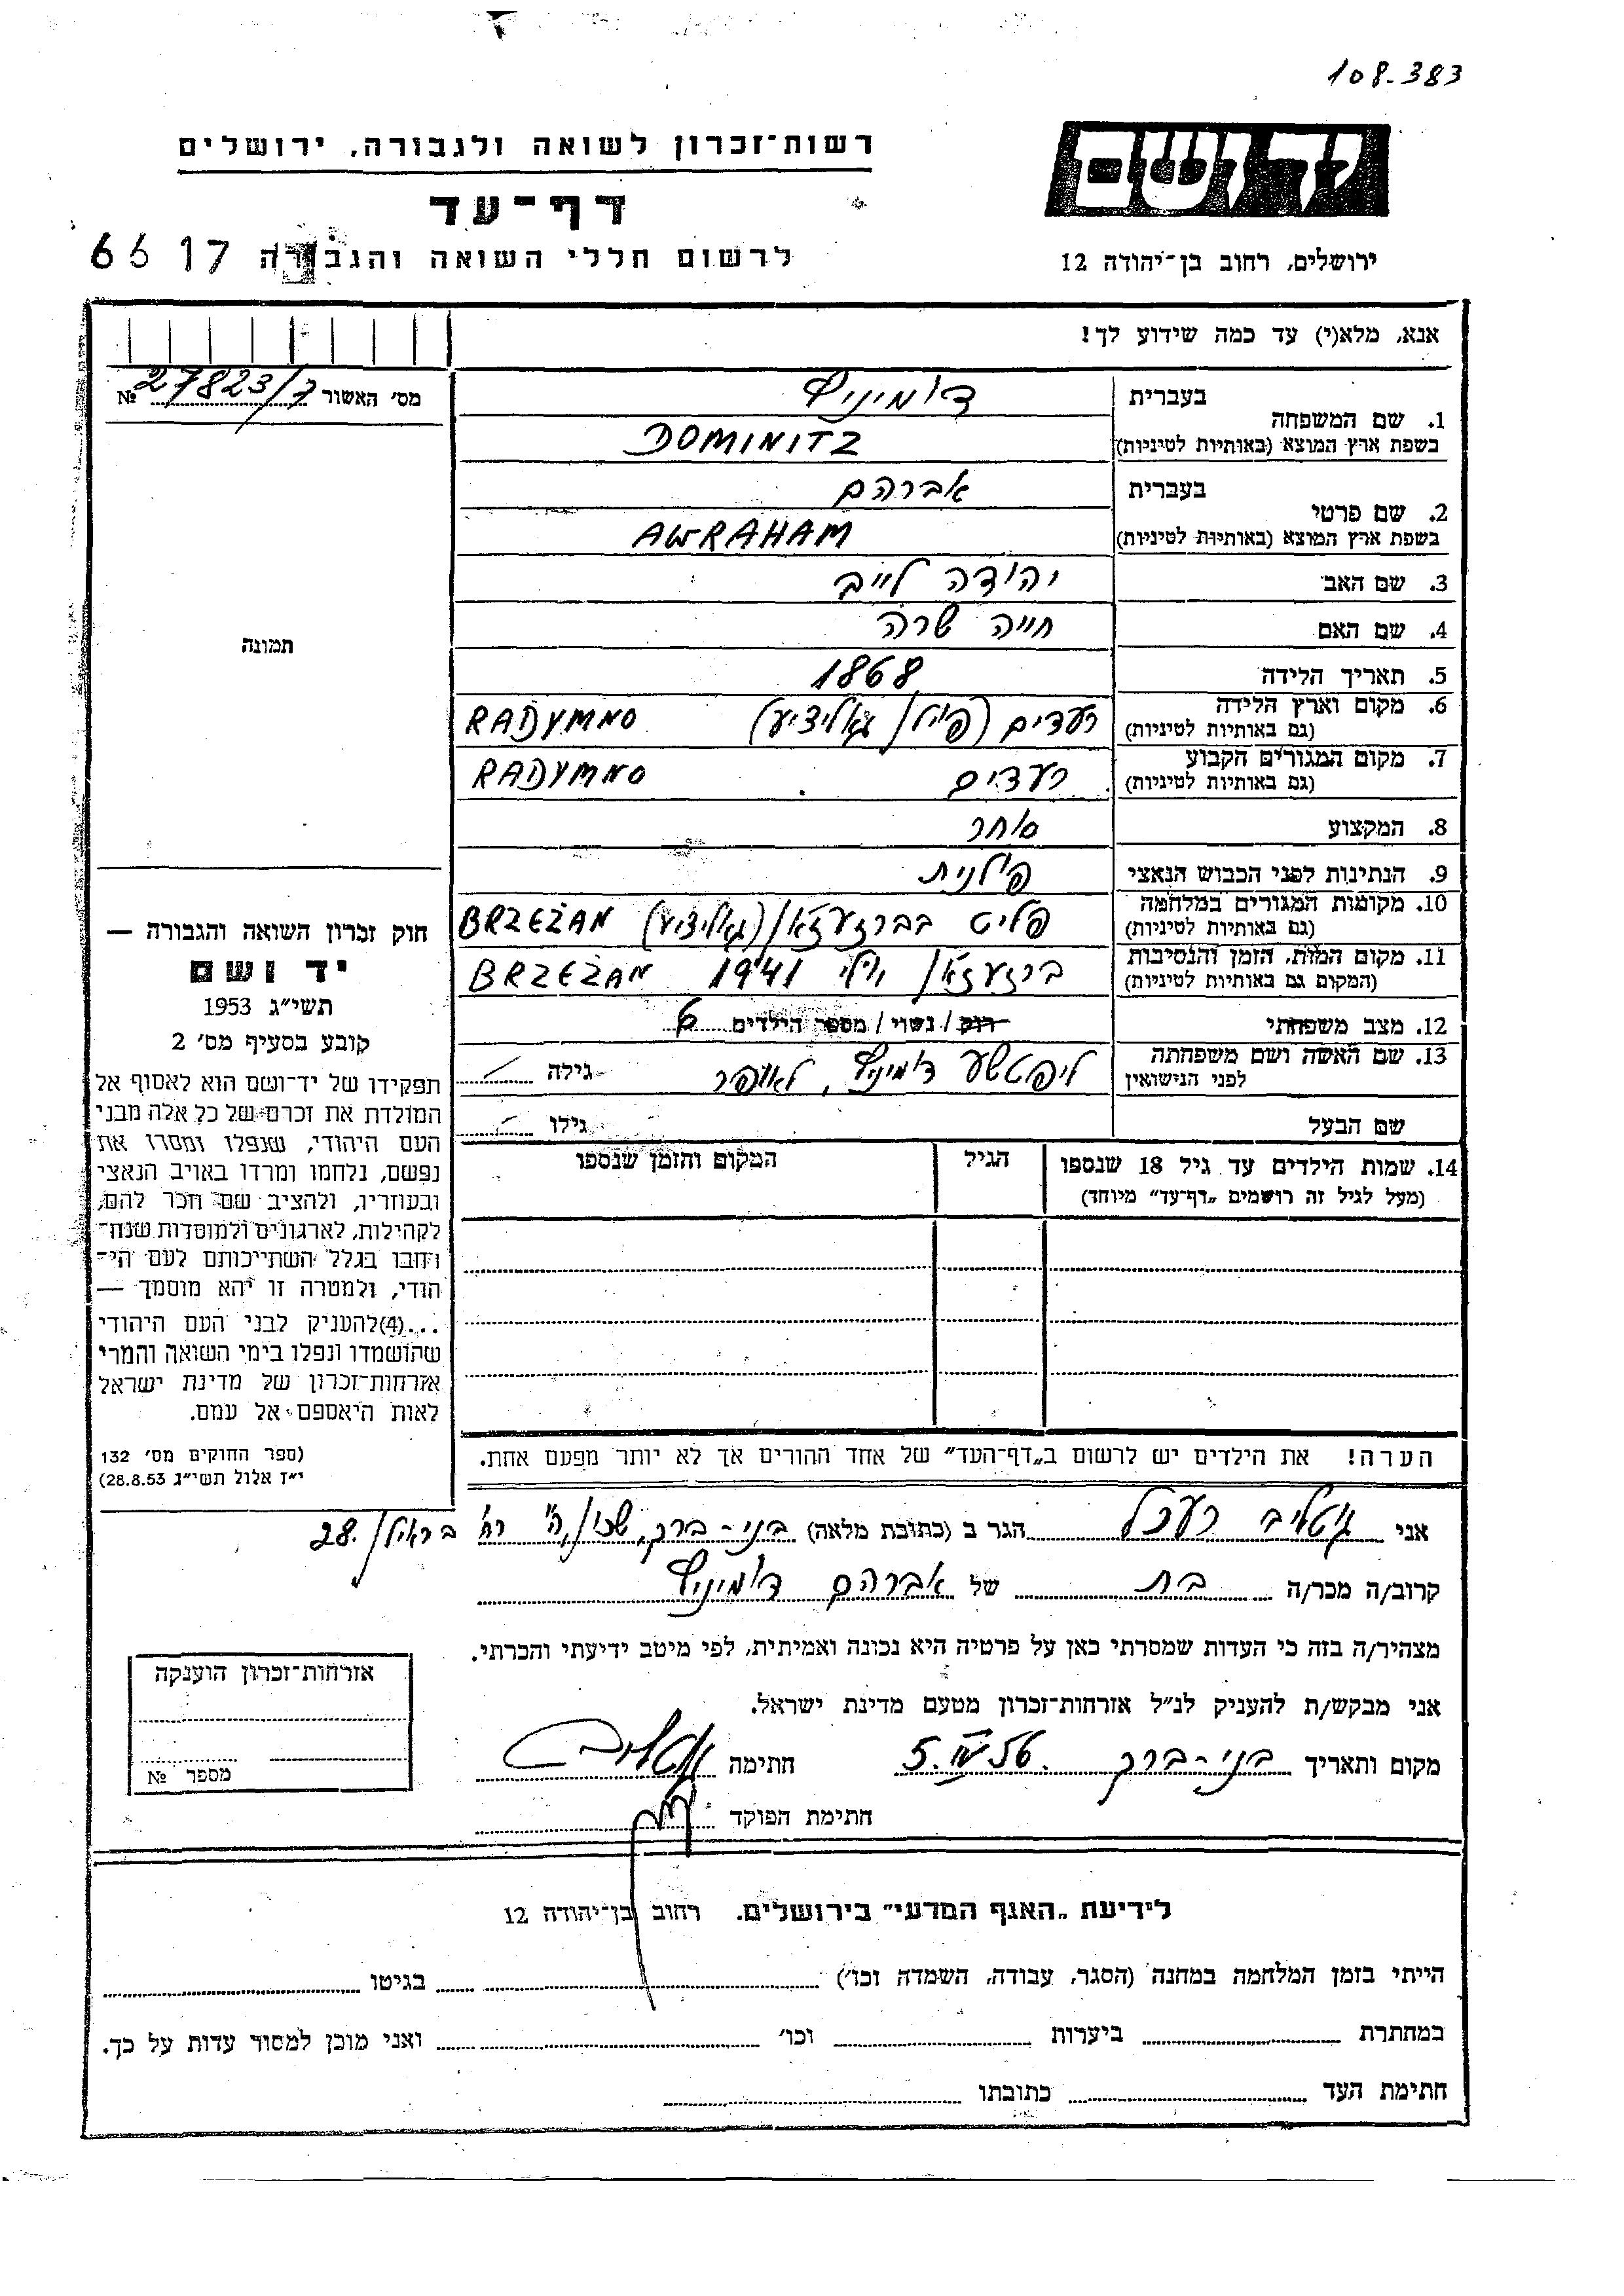 108-383
רשות־זכרון לשואה ולגבורה, ירושלים
יד ושם
דף־עד
לרשום חללי השואה והגבורה 6617
ירושלים, רחוב בן־יהודה 12
אנא, מלא(י) עד כמה שידוע לך!
מס׳ האשור 27823/7 №
בעברית דומיניץ
1. שם המשפחה
בשפת ארץ המוצא (באותיות לטיניות) DOMINITZ
בעברית אברהם
2. שם פרטי
בשפת ארץ המוצא (באותיות לטיניות) AWRAHAM
3. שם האב יהודה לייב
4. שם האם חייה שרה
תמונה
5. תאריך הלידה 1868
6. מקום וארץ הלידה רעדים (פולין גאליציע) RADYMNO
(גם באותיות לטיניות)
7. מקום המגורים הקבוע רעדים RADYMNO
(גם באותיות לטיניות)
8. המקצוע סוחר
9. הנתינות לפני הכבוש הנאצי פולנית
10. מקומות המגורים במלחמה פליט בברזעזאן (גאליציע) BRZEŻAN
(גם באותיות לטיניות)
11. מקום המות, הזמן והנסיבות ברזעזאן יולי 1941 BRZEŻAN
(המקום גם באותיות לטיניות)
12. מצב משפחתי רוק / נשוי / מספר הילדים 6
13. שם האשה ושם משפחתה דומיניץ, גילה
לפני הנישואין
שם הבעל גילו
14. שמות הילדים עד גיל 18 שנספו הגיל המקום והזמן שנספו
(מעל לגיל זה רושמים „דף־עד״ מיוחד)
חוק זכרון השואה והגבורה —
יד ושם
תשי״ג 1953
קובע בסעיף מס׳ 2
תפקידו של יד־ושם הוא לאסוף אל
המולדת את זכרם של כל אלה מבני
העם היהודי, שנפלו ומסרו את
נפשם, נלחמו ומרדו באויב הנאצי
ובעוזריו, ולהציב שם וזכר להם,
לקהילות, לארגונים ולמוסדות שנח־
רבו בגלל השתייכותם לעם הי־
הודי, ולמטרה זו יהא מוסמך —
...(4) להעניק לבני העם היהודי
שהושמדו ונפלו בימי השואה והמרי
אזרחות־זכרון של מדינת ישראל
לאות היאספם אל עמם.
(ספר החוקים מס׳ 132
י״ז אלול תשי״ג 28.8.53)
הערה! את הילדים יש לרשום ב„דף־העד״ של אחד ההורים אך לא יותר מפעם אחת.
אני גוטליב רעכל הגר ב (כתובת מלאה) בני-ברק, רח׳ 28.
קרוב/ה מכר/ה בת של אברהם דומיניץ
מצהיר/ה בזה כי העדות שמסרתי כאן על פרטיה היא נכונה ואמיתית, לפי מיטב ידיעתי והכרתי.
אני מבקש/ת להעניק לנ״ל אזרחות־זכרון מטעם מדינת ישראל.
מקום ותאריך בני-ברק 5.IV.56. חתימה
חתימת הפוקד
אזרחות־זכרון הוענקה
מספר №
לידיעת „האגף המדעי״ בירושלים, רחוב בן־יהודה 12
הייתי בזמן המלחמה במחנה (הסגר, עבודה, השמדה וכו׳) בגיטו
במחתרת ביערות וכו׳ ואני מוכן למסור עדות על כך.
חתימת העד כתובתו